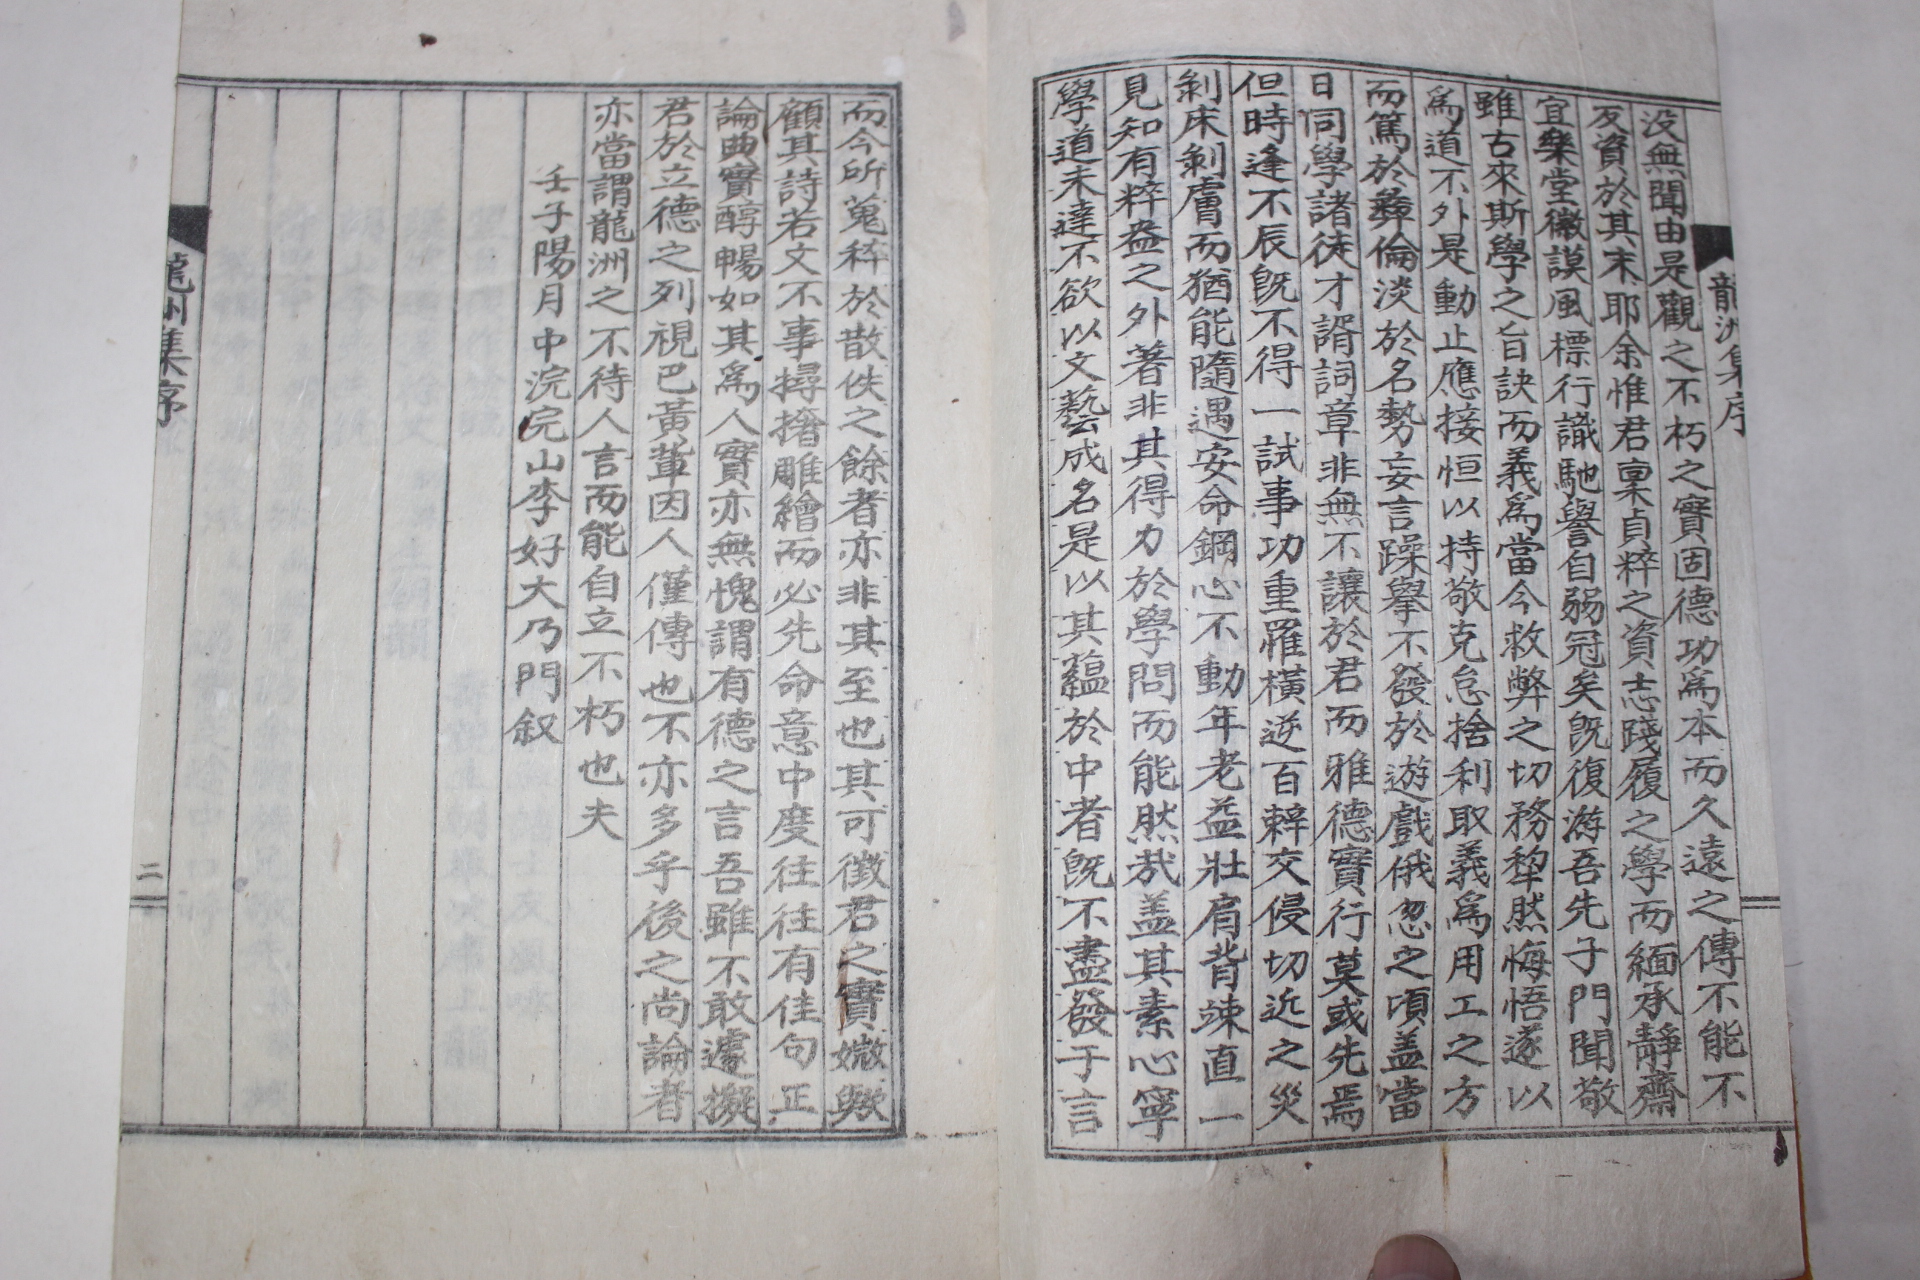 龍洲集序
没無聞由是觀之不朽之實固德功爲本而久遠之傳不能不
反資於其末耶余惟君稟貞粹之資志踐履之學而緬承靜齋
宜樂堂徽謨風標行識馳譽自弱冠矣旣復游吾先子門聞敬
雖古來斯學之旨訣而義爲當今救弊之切務犂然悔悟遂以
爲道不外是動止應接恒以持敬克怠捨利取義爲用工之方
而篤於彝倫淡於名勢妄言躁擧不發於遊戱俄忽之頃盖當
日同學諸徒才諝詞章非無不讓於君而雅德實行莫或先焉
但時逢不辰旣不得一試事功重罹橫逆百辢交侵切近之災
剝床剝膚而猶能隨遇安命鋼心不動年老益壯肩背竦直一
見知有粹盎之外著非其得力於學問而能然哉盖其素心寧
學道未達不欲以文藝成名是以其蘊於中者旣不盡發于言
而今所蒐稡於散佚之餘者亦非其至也其可徵君之實媺歟
顧其詩若文不事撏撦雕繪而必先命意中度往往有佳句正
論典實醇暢如其爲人實亦無愧謂有德之言吾雖不敢遽擬
君於立德之列視巴黃輩因人僅傳也不亦多乎後之尚論者
亦當謂龍洲之不待人言而能自立不朽也夫
壬子陽月中浣完山李好大乃門叙
龍洲集序
二